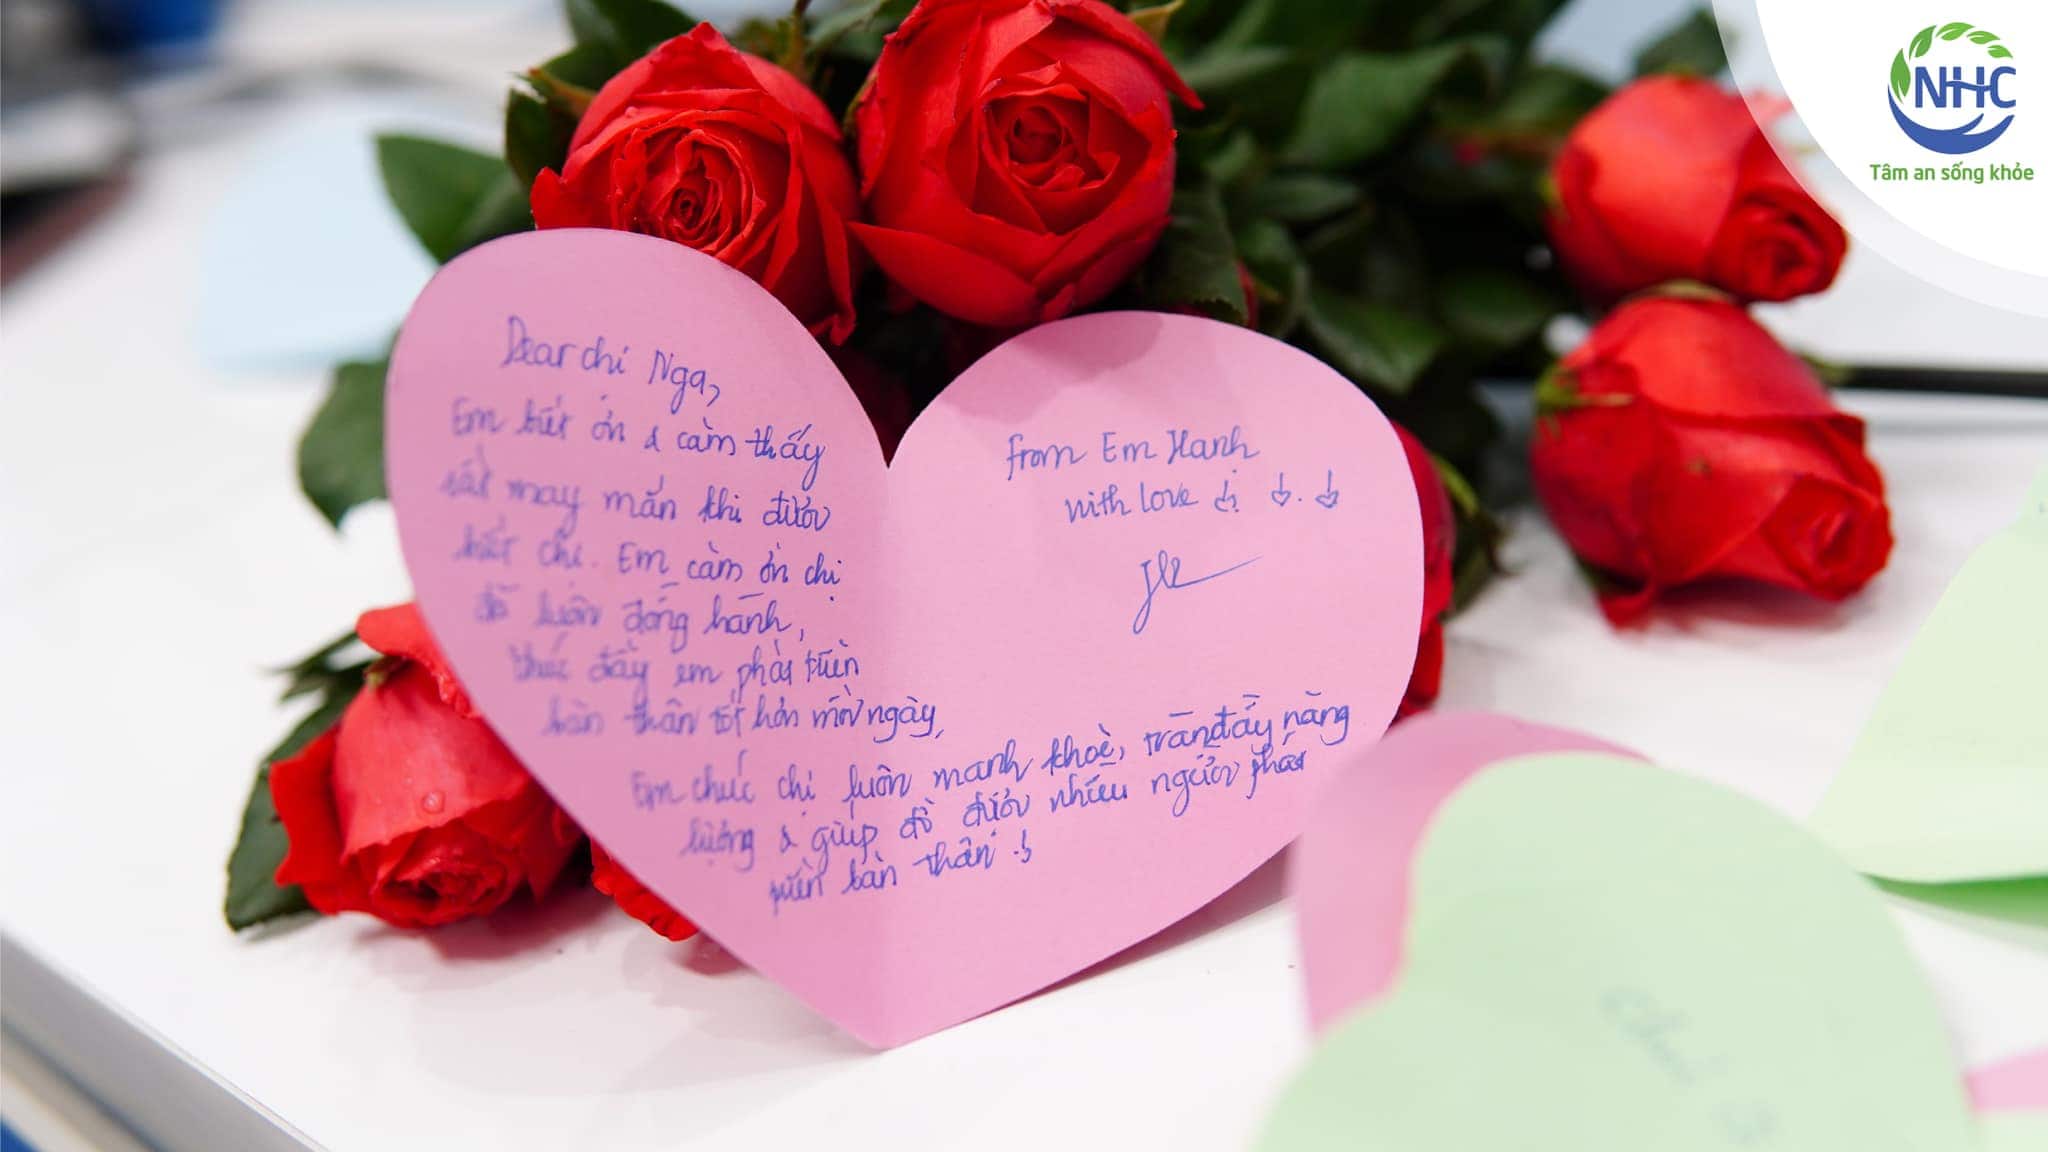 NHC
Tâm an sống khỏe
Dear chị Nga,
Em biết ơn & cảm thấy
rất may mắn khi được
biết chị. Em cảm ơn chị
đã luôn đồng hành,
thúc đẩy em phát triển
bản thân tốt hơn mỗi ngày,
Em chúc chị luôn mạnh khoẻ, tràn đầy năng
lượng & giúp đỡ được nhiều người phát
triển bản thân!
From Em Hạnh
with love